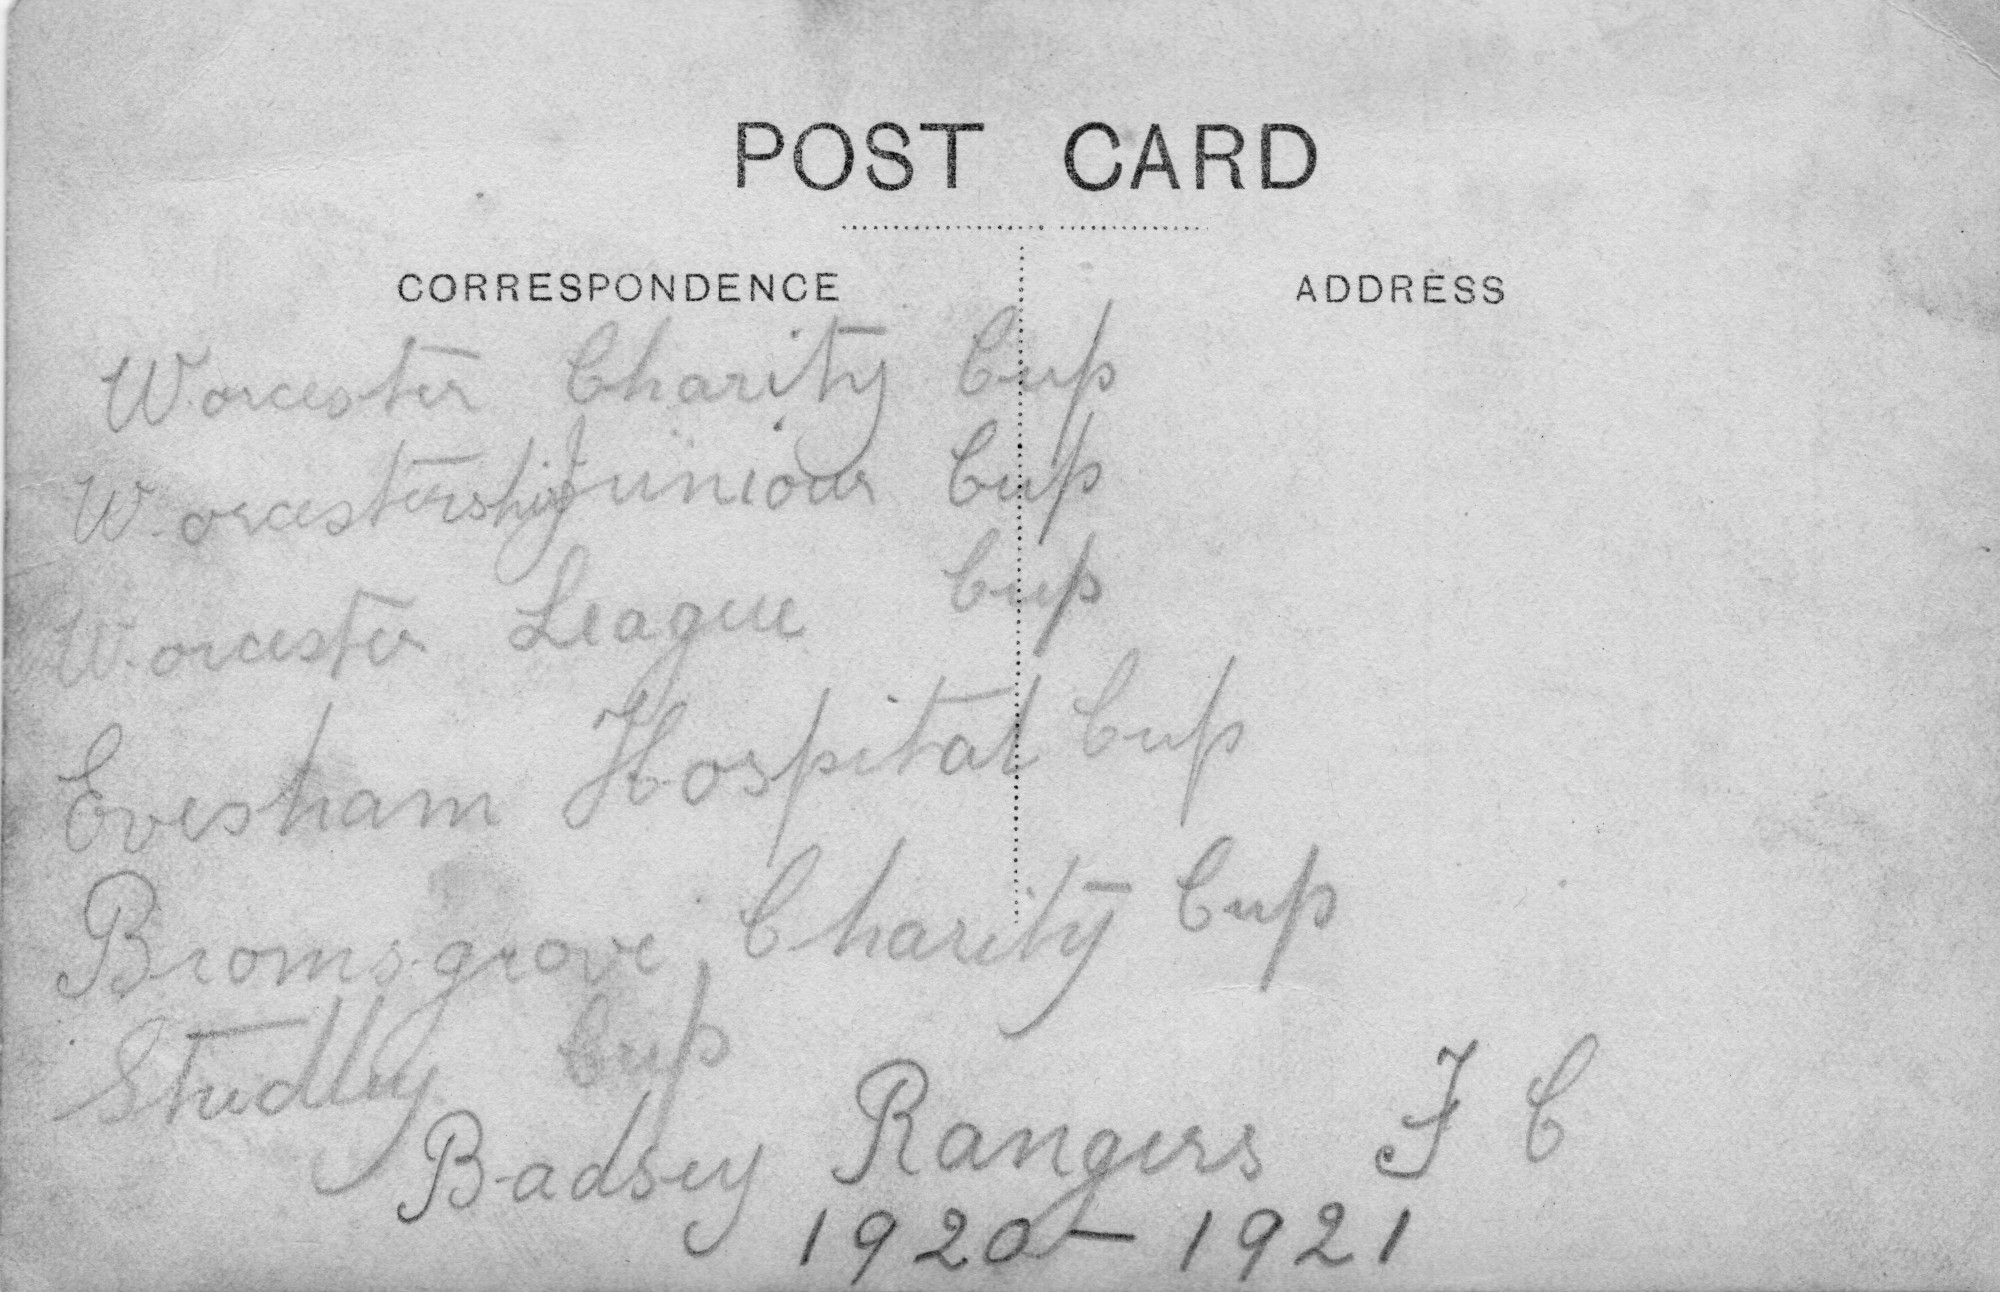 POST CARD
CORRESPONDENCE
ADDRESS
Worcester Charity Cup
Worcestershire Juniour Cup
Worcester League Cup
Evesham Hospital Cup
Bromsgrove Charity Cup
Studley Cup
Badsey Rangers F C
1920 - 1921